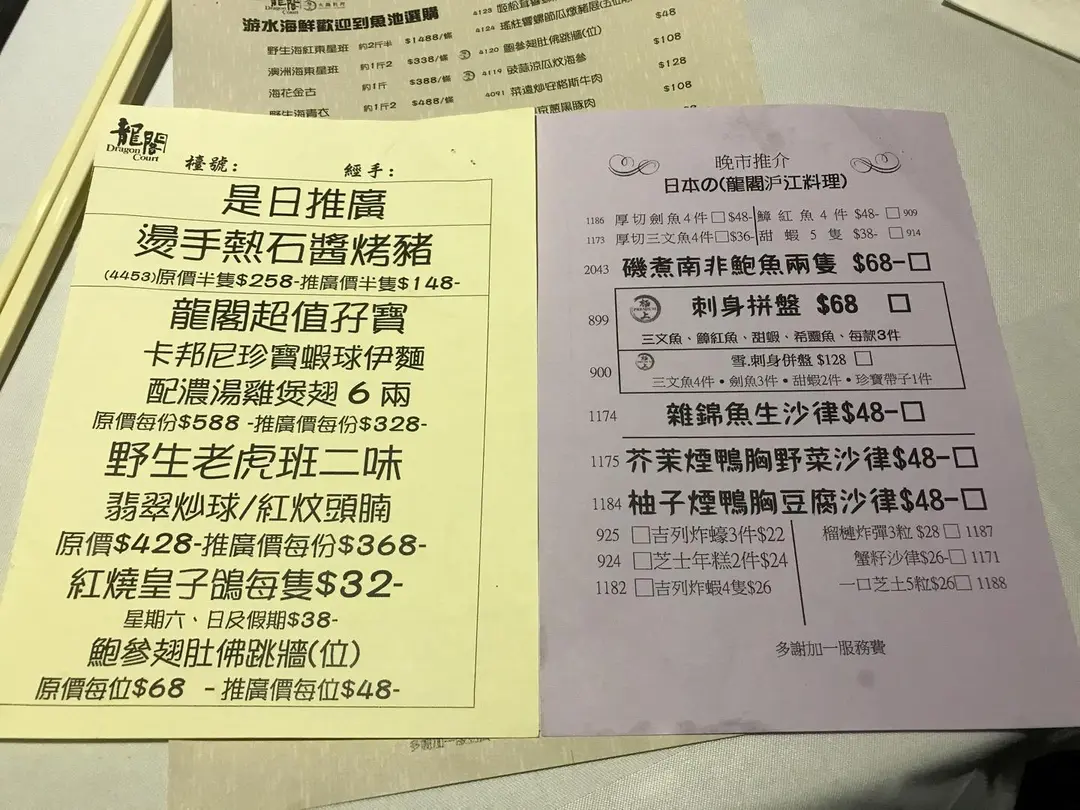 游水海鮮歡迎到魚池選購
野生海紅東星班 約2斤半 $1488/條
澳洲海東星班 約1斤2 $338/條
海花金古 約1斤 $388/條
野生海青衣 約1斤2 $488/條
4123
4124
$48
4120 鮑參翅肚佛跳牆(位) $108
4119 豉蒜涼瓜炆海參 $128
4091 菜遠炒安格斯牛肉 $108
京蔥黑豚肉
龍閣
Dragon Court
檯號: 經手:
是日推廣
燙手熱石醬烤豬
(4453)原價半隻$258-推廣價半隻$148-
龍閣超值孖寶
卡邦尼珍寶蝦球伊麵
配濃湯雞煲翅 6 兩
原價每份$588 -推廣價每份$328-
野生老虎班二味
翡翠炒球/紅炆頭腩
原價$428-推廣價每份$368-
紅燒皇子鴿每隻$32-
星期六、日及假期$38-
鮑參翅肚佛跳牆(位)
原價每位$68 -推廣價每位$48-
晚市推介
日本の(龍閣沪江料理)
1186 厚切劍魚4件□$48- 鱆紅魚4件$48-□ 909
1173 厚切三文魚4件□$36- 甜蝦5隻$38-□ 914
2043 磯煮南非鮑魚兩隻 $68-□
899 極上 PREMIUM 刺身拼盤 $68 □
三文魚、鱆紅魚、甜蝦、希靈魚、每款3件
900 雪.刺身併盤 $128 □
三文魚4件•劍魚3件•甜蝦2件•珍寶帶子1件
1174 雜錦魚生沙律$48-□
1175 芥茉煙鴨胸野菜沙律$48-□
1184 柚子煙鴨胸豆腐沙律$48-□
925 □吉列炸蠔3件$22 榴槤炸彈3粒 $28 □ 1187
924 □芝士年糕2件$24 蟹籽沙律$26-□ 1171
1182 □吉列炸蝦4隻$26 一口芝士5粒$26□ 1188
多謝加一服務費